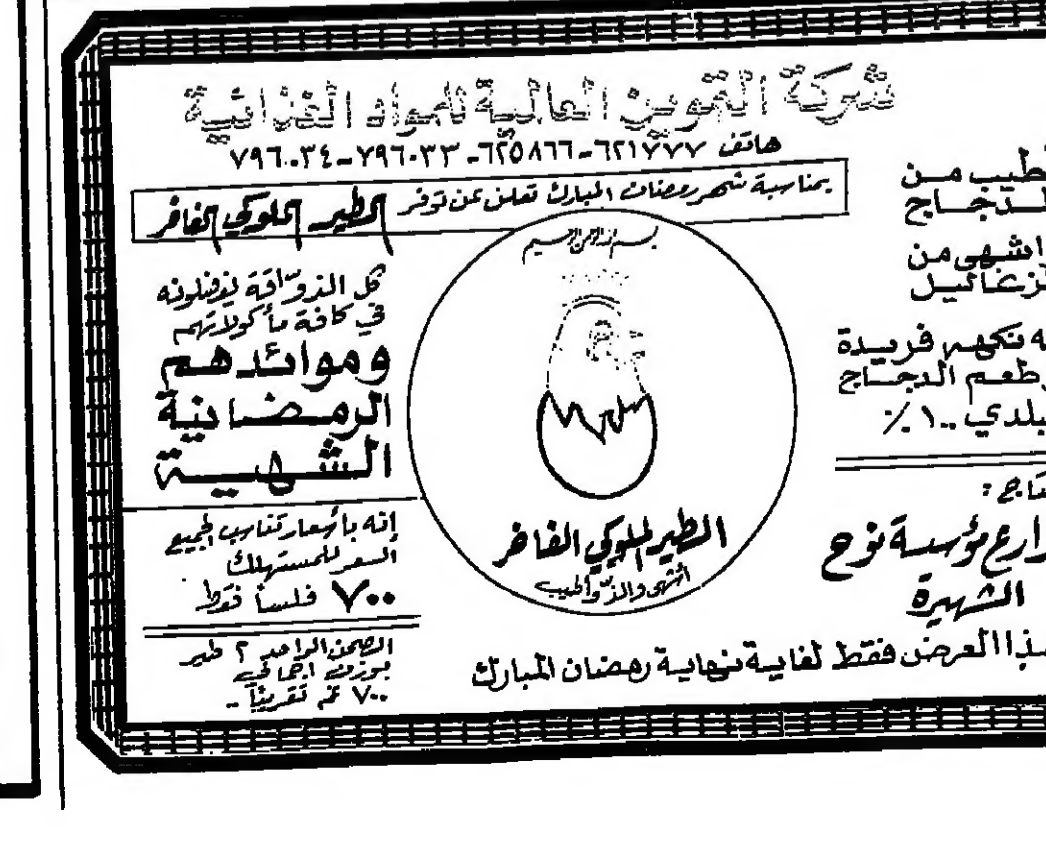 شركة التموين العالمية للمواد الغذائية
هاتف ٦٢١٧٧٧-٦٢٥٨٦٦-٧٩٦٠٣٣-٧٩٦٠٣٤
بمناسبة شهر رمضان المبارك تعلن عن توفر الطير الملوكي الفاخر
أطيب من
الدجاج
واشهى من
الزغاليل
له نكهه فريدة
وطعم الدجاج
البلدي ١٠٠٪
انتاج:
مزارع مؤسسة نوح
الشهيرة
بسم الله الرحمن الرحيم
الطير الملوكي الفاخر
أشهى وألذ وأطيب
كل الذوّاقة يفضلونه
في كافة مأكولاتهم
وموائدهم
الرمضانية
الشهية
إنه بأسعار تناسب الجميع
السعر للمستهلك
٧٠٠ فلساً فقط
الصحن الواحد ٢ طير
بوزن اجمالي
٧٠٠ غم تقريباً ..
هذا العرض فقط لغاية نهاية رمضان المبارك